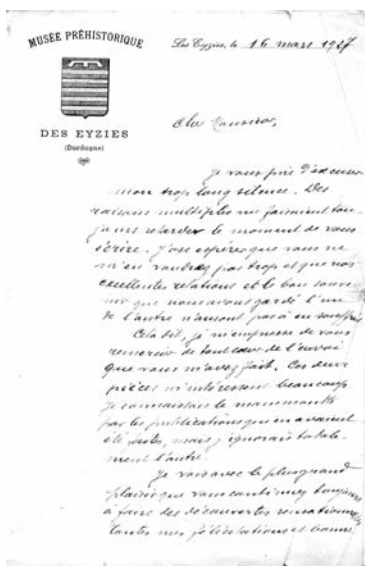 MUSÉE PRÉHISTORIQUE
DES EYZIES
(Dordogne)
Les Eyzies, le 16 mars 1927
Cher Monsieur,
Je vous prie d'excuser
mon trop long silence. Des
raisons multiples me faisaient tou-
jours retarder le moment de vous
écrire. J'ose espérer que vous ne
m'en voudrez pas trop et que nos
excellentes relations et le bon souve-
nir que nous avons gardé l'un
de l'autre n'auront pas à en souffrir
Cela dit, je m'empresse de vous
remercier de tout cœur de l'envoi
que vous m'avez fait. Ces deux
pièces m'intéressent beaucoup
Je connaissais le mammouth
par les publications qui en avaient
été faites, mais j'ignorais totale-
ment l'autre.
Je vois avec le plus grand
plaisir que vous continuez toujours
à faire des découvertes
toutes mes félicitations et bonne